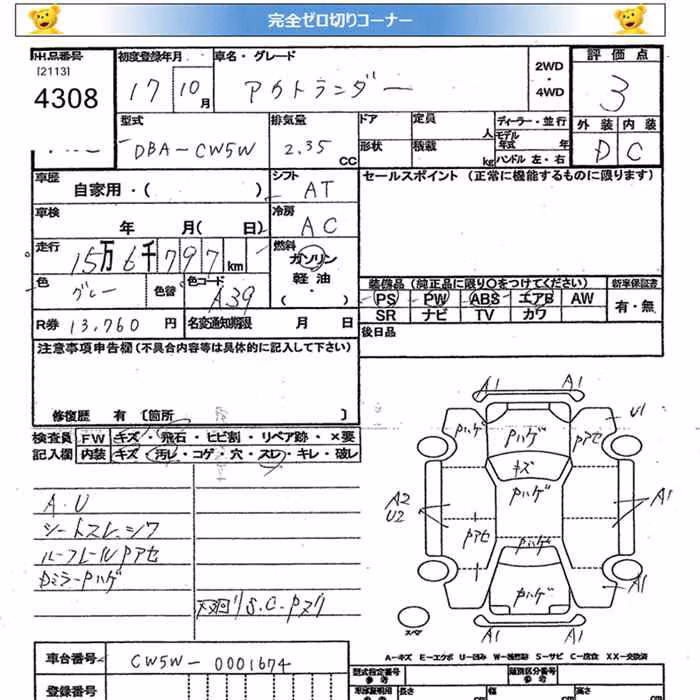 完全ゼロ切りコーナー
出品番号 初度登録年月 車名・グレード 2WD ・ 4WD 評価点
[2113]
4308 17 10月 アウトランダー 3
型式 排気量 ドア 定員 人 ディーラー・並行 外装 内装
DBA-CW5W 2.35 CC 形状 積載 kg モデル年式 年 ハンドル 左・右 D C
車歴 自家用・( ) シフト AT セールスポイント (正常に機能するものに限ります)
車検 年 月( 日) 冷房 AC
走行 15万6千797 km 燃料 ガソリン 軽油 ・( )
色 グレー 色替 色コード A39 装備品 (純正品に限り○をつけてください) 新車保証書
PS PW ABS エアB AW 有・無
SR ナビ TV カワ
R券 13,760 円 名変通知期限 月 日 後日品
注意事項申告欄(不具合内容等は具体的に記入して下さい)
修復歴 有 [箇所 ]
検査員 FW キズ・飛石・ヒビ割・リペア跡・×要
記入欄 内装 キズ・汚レ・コゲ・穴・スレ・キレ・破レ
A.U
シートスレ.シワ
ルーフレールPアセ
DミラーPハゲ
下廻りS.C.Pヌケ
A1 A1
Pハゲ Pハゲ Pアセ U1
キズ
A2 Pハゲ A1
U2
Pアセ Pハゲ
Pハゲ A1
スペア A1 A1
A-キズ E-エクボ U-凹み W-補修跡 S-サビ C-腐食 XX-交換済
車台番号 CW5W-0001674
登録番号
型式指定番号 参考 類別区分番号 参考
車庫証明用 参考 長さ cm 幅 cm 高さ cm